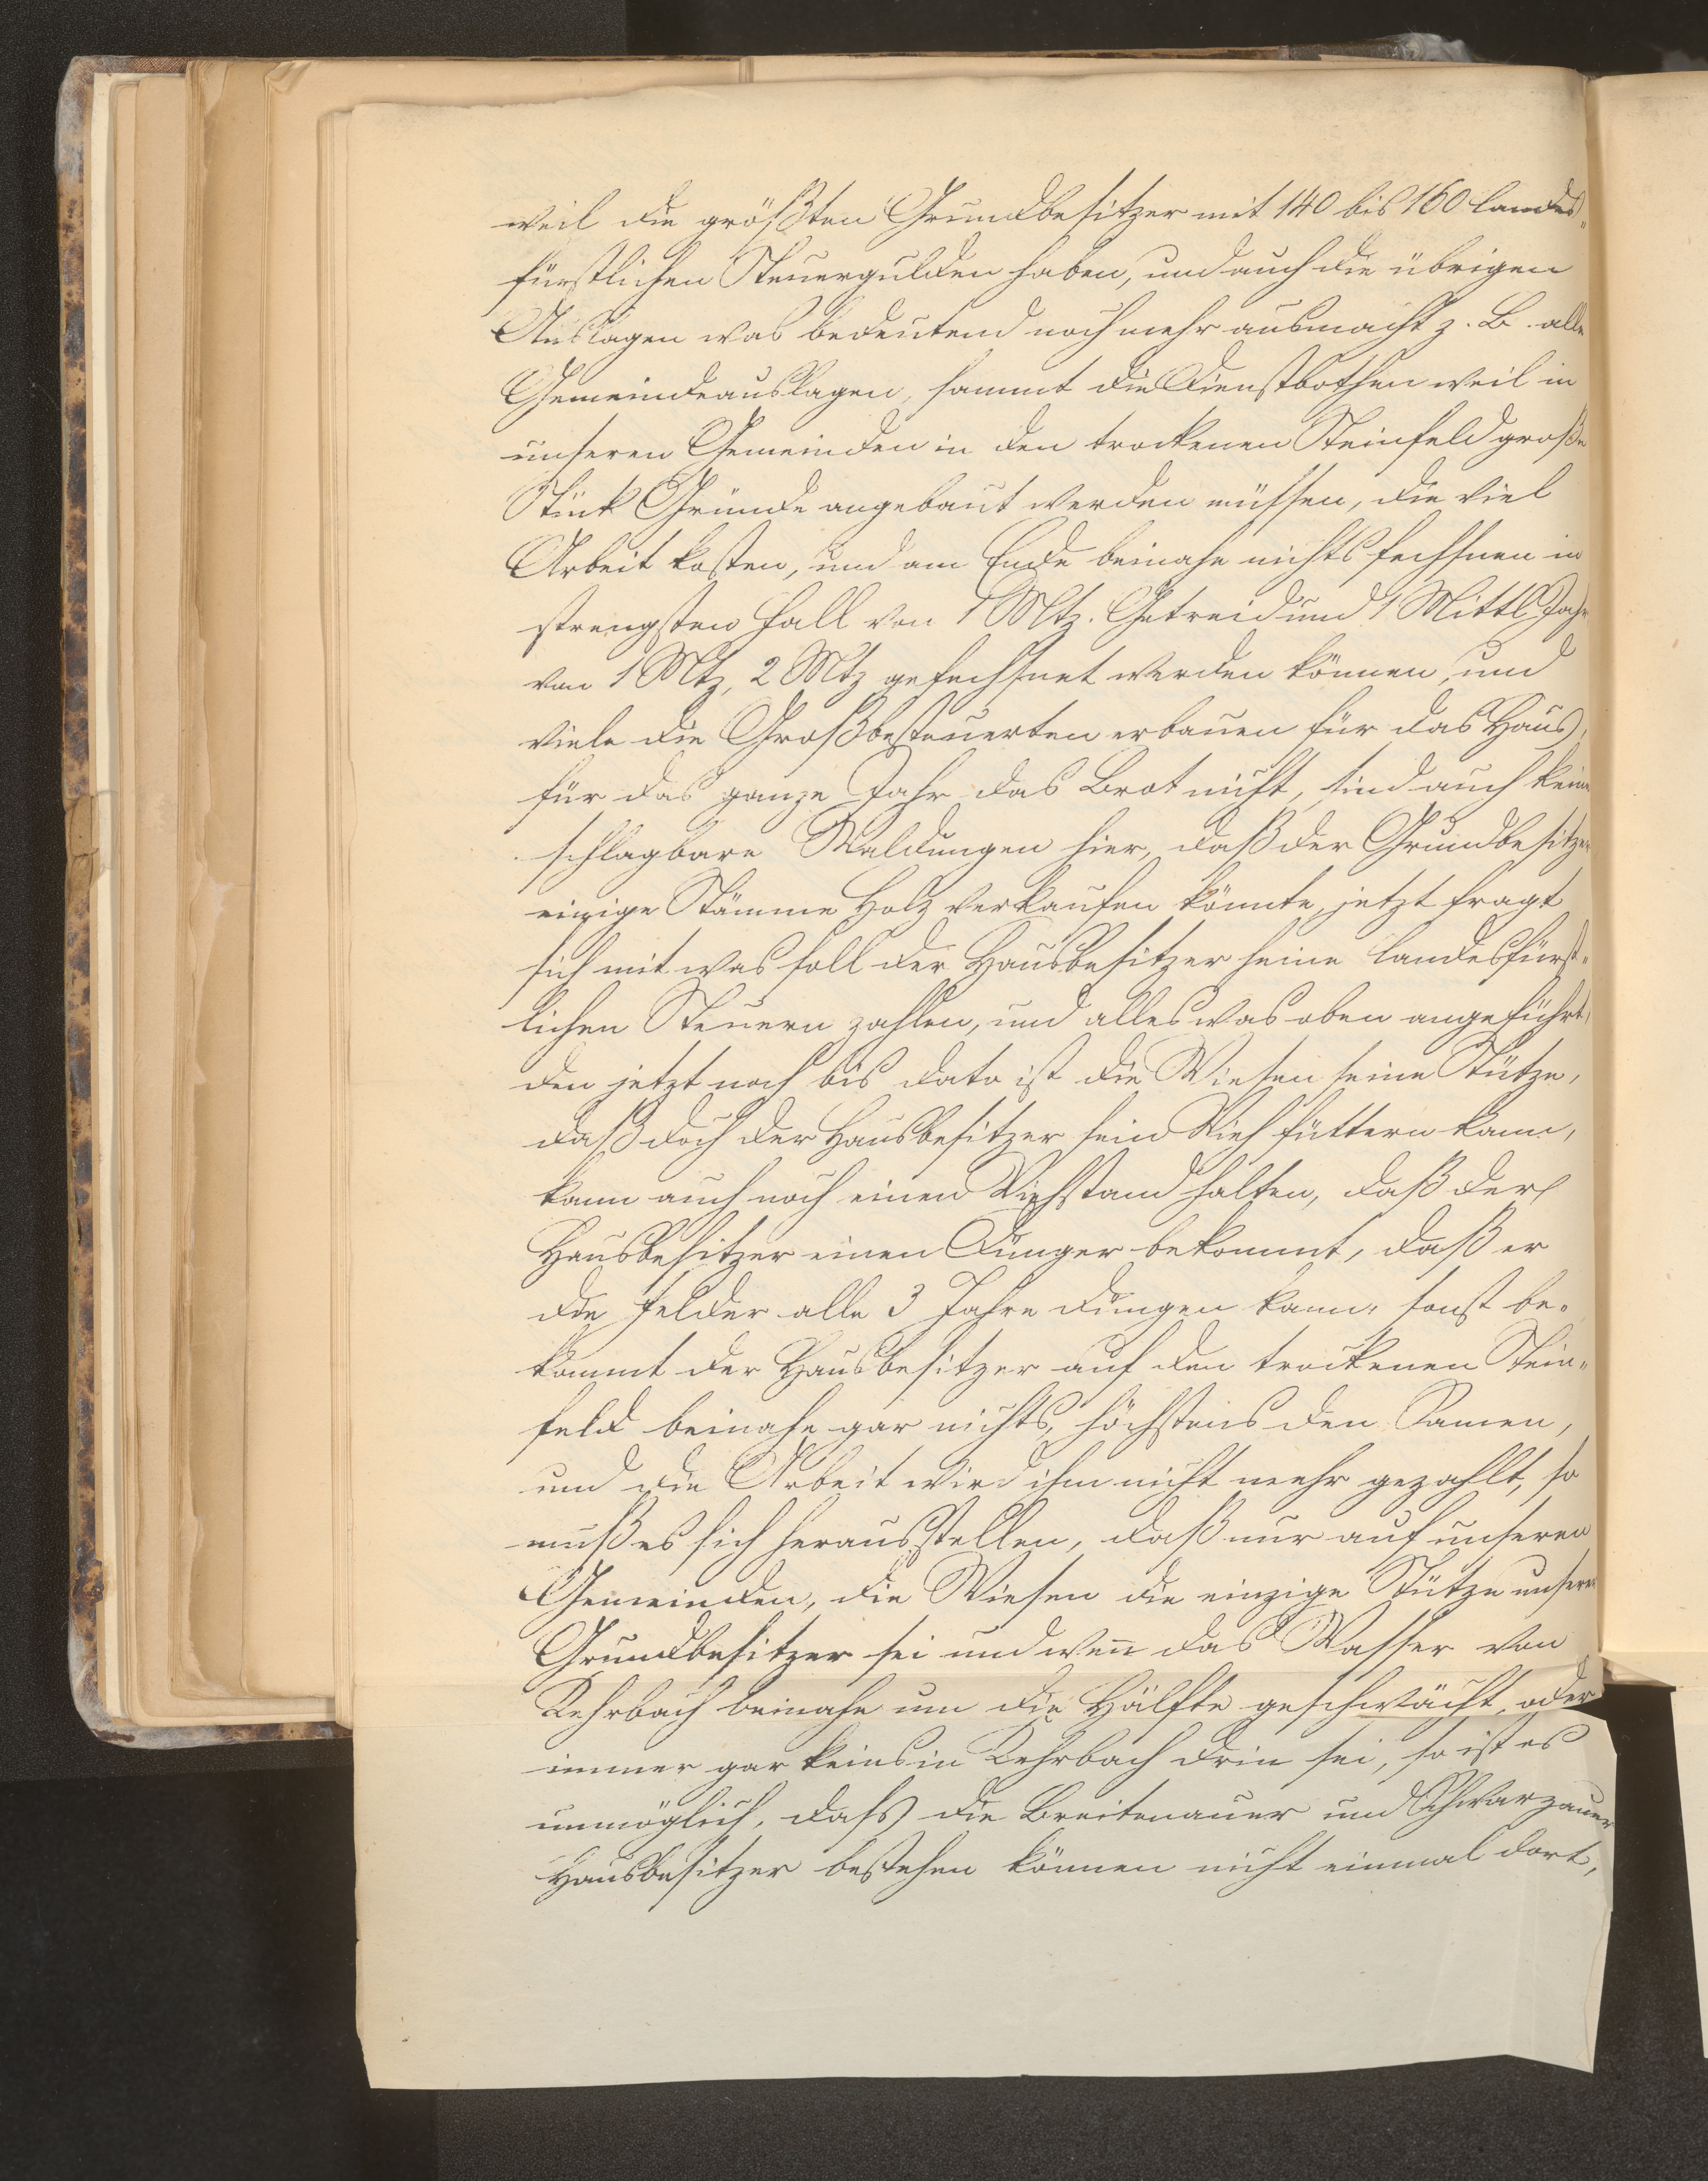 weil die größten Grundbesitzer mit 140 bis 160 landes„
fürstlichen Steuergulden haben, und auch die übrigen
Auslagen was bedeutend noch mehr ausmacht z. B. alle
Gemeindeauslagen, sammt die Dienstbothen weil in
unseren Gemeinden in den trockenen Steinfeld große
Stück Gründe angebaut werden müssen, die viel
Arbeit kosten, und am Ende beinahe nichts fechsnen in
strengsten Fall von 1 Mtz. Getreid und 1 Mittl Jahr
von 1 Mtz, 2 Mtz gefechsnet werden können, und
viele die Großbesteuerten erbauen für das Haus,
für das ganze Jahr das Brot nicht, sind auch keine
schlagbare Waldungen hier, daß der Grundbesitzer
einige Stämme Holz verkaufen könnte, jetzt fragt
sich mit was soll der Hausbesitzer seine landesfürst„
lichen Steuern zahlen, und alles was oben angeführt,
den jetzt noch bis dato ist die Wiesen seine Stütze,
daß doch der Hausbesitzer sein Vieh füttern kann,
kann auch noch einen Viehstand halten, daß der
Hausbesitzer einen Dünger bekommt, daß er
die Felder alle 3 Jahre düngen kann, sonst be„
kommt der Hausbesitzer auf den trockenen Stein„
feld beinahe gar nichts, höchstens den Samen,
und die Arbeit wird ihm nicht mehr gezahlt, so
muß es sich herausstellen, daß nur auf unseren
Gemeinden, die Wiesen die einzige Stütze unserer
Grundbesitzer sei und weñ das Wasser von
Kehrbach beinahe um die Hälfte geschwächt, oder
immer gar keins in Kehrbach drin sei, so ist es
unmöglich, dass die Breitenauer und Schwarzauer
Hausbesitzer bestehen können nicht einmal dort,